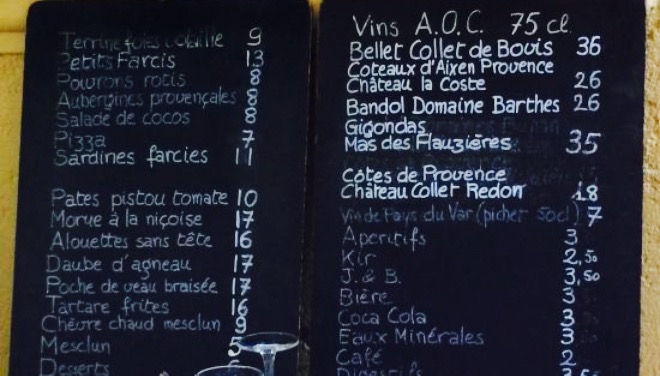 Terrine foies volaille 9
Petits Farcis 13
Poivrons rotis 8
Aubergines provençales 8
Salade de cocos 8
Pizza 7
Sardines farcies 11
Pates pistou tomate 10
Morue à la niçoise 17
Alouettes sans tête 16
Daube d'agneau 17
Poche de veau braisée 17
Tartare frites 16
Chèvre chaud mesclun 9
Mesclun 5
Desserts 6
Vins A.O.C. 75 cl
Bellet Collet de Bovis 36
Coteaux d'Aix en Provence
Château la Coste 26
Bandol Domaine Barthes 26
Gigondas
Mas des Flauzières 35
Côtes de Provence
Château Collet Redon 18
Vin de Pays du Var (picher 50cl) 7
Aperitifs 3
Kir 2,50
J. & B. 3,50
Bière 3
Coca Cola 3
Eaux Minérales 3
Café 2
Digestifs 3,50